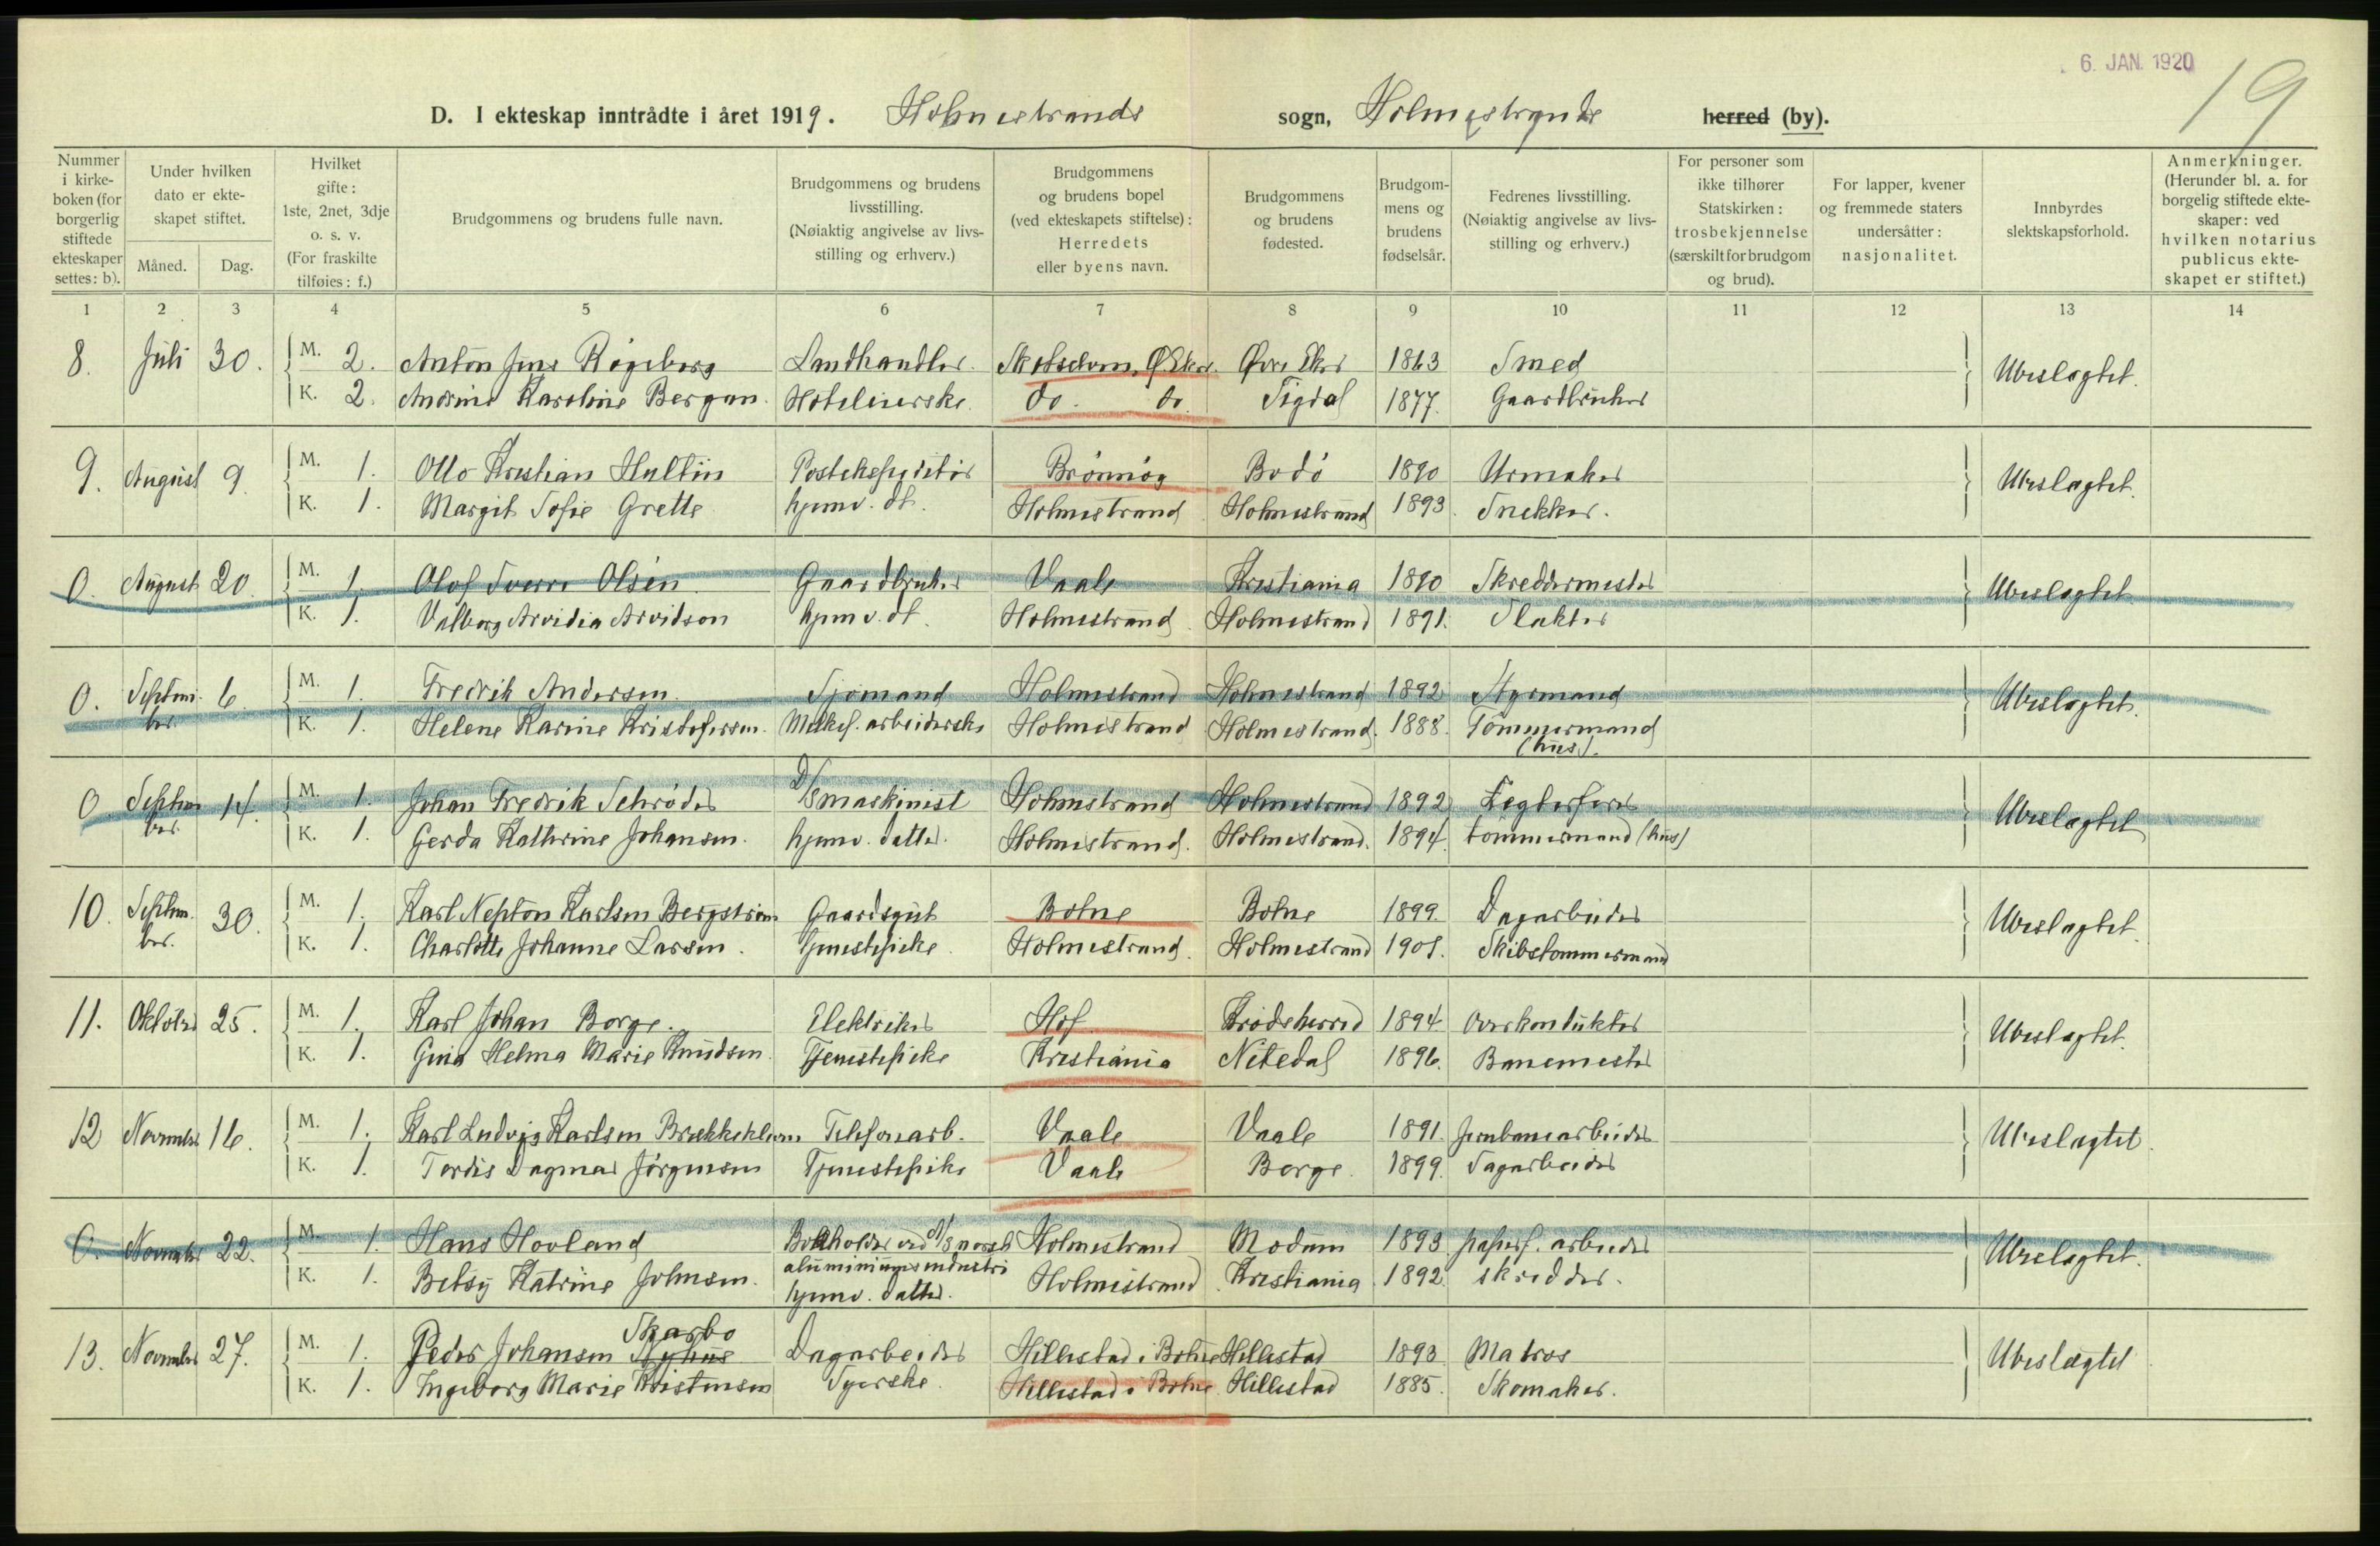 6. JAN. 1920
19
D. I ekteskap inntrådte i året 1919. Holmestrands sogn, Holmestrands herred (by).
Nummer i kirkeboken (for borgerlig stiftede ekteskaper settes: b).
Under hvilken dato er ekteskapet stiftet.
Måned. Dag.
Hvilket gifte: 1ste, 2net, 3dje o. s. v. (For fraskilte tilføies: f.)
Brudgommens og brudens fulle navn.
Brudgommens og brudens livsstilling. (Nøiaktig angivelse av livsstilling og erhverv.)
Brudgommens og brudens bopel (ved ekteskapets stiftelse): Herredets eller byens navn.
Brudgommens og brudens fødested.
Brudgommens og brudens fødselsår.
Fedrenes livsstilling. (Nøiaktig angivelse av livsstilling og erhverv.)
For personer som ikke tilhører Statskirken: trosbekjennelse (særskilt for brudgom og brud).
For lapper, kvener og fremmede staters undersåtter: nasjonalitet.
Innbyrdes slektskapsforhold.
Anmerkninger. (Herunder bl. a. for borgelig stiftede ekteskaper: ved hvilken notarius publicus ekteskapet er stiftet.)
1 2 3 4 5 6 7 8 9 10 11 12 13 14
8. Juli 30. M. 2. Anton Jens Røgeberg Landhandler. Skotselven, Ø Eker. Øvre Eker 1863 Smed Ubeslægtet.
K. 2. Andrine Karoline Bergan. Hotelierske. do. do. Sigdal 1877. Gaardbruker
9. August 9. M. 1. Otto Kristian Hultin Postekspeditør Brönnöy Bodö 1890 Urmaker Ubeslægtet.
K. 1. Margit Sofie Grette hjemv. dt. Holmestrand Holmestrand 1893. Snekker.
0. August 20. M. 1. Olof Sverre Olsen Gaardbruker Vaale Kristiania 1890 Skreddermester Ubeslægtet.
K. 1. Valborg Arvidia Arvidson hjemv. dt. Holmestrand Holmestrand 1891. Slakter
0. September 6. M. 1. Fredrik Andersen Sjömand Holmestrand Holmestrand 1892 Styrmand Ubeslægtet.
K. 1. Helene Karine Kristofersen. Melkef. arbeiderske Holmestrand Holmestrand. 1888. Tömmermand (hus).
0 September 14. M. 1. Johan Fredrik Schröder D/S maskinist Holmestrand Holmestrand 1892 Legterfører Ubeslægtet
K. 1. Gerda Kathrine Johansen. hjemv. datter. Holmestrand. Holmestrand. 1894. tömmermand (hus)
10. September. 30. M. 1. Karl Nepton Karlsen Bergström Gaardsgut Botne Botne 1899. Dagarbeider Ubeslægtet.
K. 1. Charlotte Johanne Larsen. Tjenestepike Holmestrand. Holmestrand 1901. Skibstømmermand
11. Oktober 25. M. 1. Karl Johan Borge. Elektriker Hof Krödsherred 1894 Overkonduktør Ubeslægtet.
K. 1. Gina Helma Marie Knudsen. Tjenestepike Kristiania Nitedal 1896. Banemester
12 November 16. M. 1. Karl Ludvig Karlsen Brækkeklevn Telefonarb. Vaale Vaale 1891. Jernbanearbeider Ubeslægtet.
K. 1. Tordis Dagmar Jörgensen Tjenestepike Vaale Borge. 1899. Sagarbeider
0. November 22. M. 1. Hans Hovland Bokholder ved A/S norsk aluminiumsindustri Holmestrand Modum 1893 papirf. arbeider Ubeslægtet.
K. 1. Betsy Katrine Johnsen. hjemv. datter. Holmestrand Kristiania 1892. skredder.
13. November 27. M. 1. Peder Johansen Skarbo Hillestad i Botne Dagarbeider Hillestad 1893 Matros Ubeslægtet
K. 1. Ingeborg Marie Kristensen Syerske. Hillestad i Botne. Hillestad 1885. Skomaker.